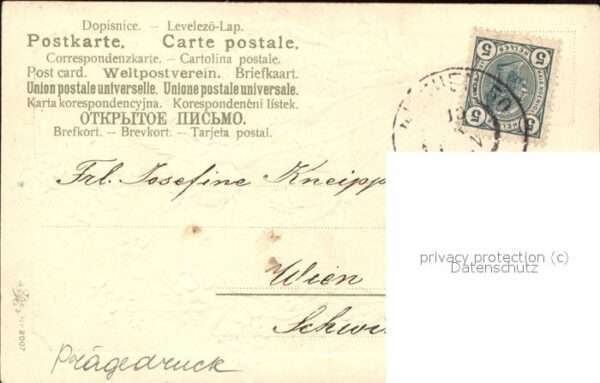 Dopisnice. – Levelező-Lap.
Postkarte. Carte postale.
Correspondenzkarte. – Cartolina postale.
Post card. Weltpostverein. Briefkaart.
Union postale universelle. Unione postale universale.
Karta korespondencyjna. Korespondenční lístek.
ОТКРЫТОЕ ПИСЬМО.
Brefkort. – Brevkort. – Tarjeta postal.
5 HELLER 5
WIEN 50
Frl. Josefine Kneipp
privacy protection (c)
Datenschutz
Wien
Schwi
2007
Prägedruck